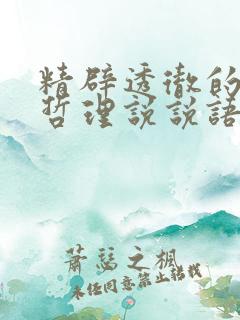 精辟透彻的
哲理说说语
萧瑟之枫
未经同意禁止转载